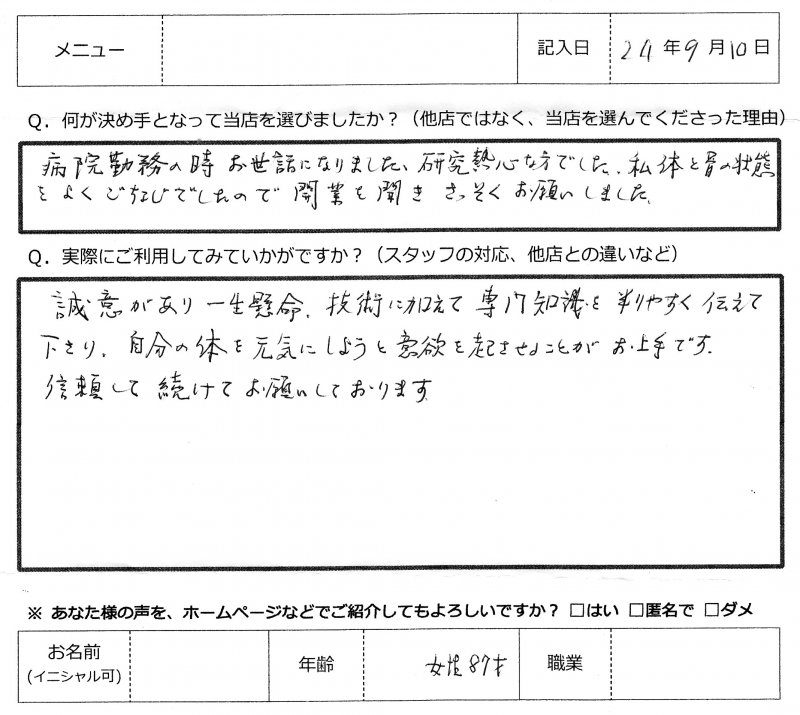 メニュー 記入日 24年9月10日
Q．何が決め手となって当店を選びましたか？（他店ではなく、当店を選んでくださった理由）
病院勤務の時 お世話になりました、研究熱心な方でした、私体と骨の状態
をよくごぞんじでしたので 開業を聞き さっそくお願いしました。
Q．実際にご利用してみていかがですか？（スタッフの対応、他店との違いなど）
誠意があり 一生懸命、技術に加えて 専門知識を 判りやすく伝えて
下さり、自分の体を元気にしようと意欲を起させることがお上手です。
信頼して続けてお願いしております
※ あなた様の声を、ホームページなどでご紹介してもよろしいですか？ □はい □匿名で □ダメ
お名前 年齢 女性87才 職業
(イニシャル可)